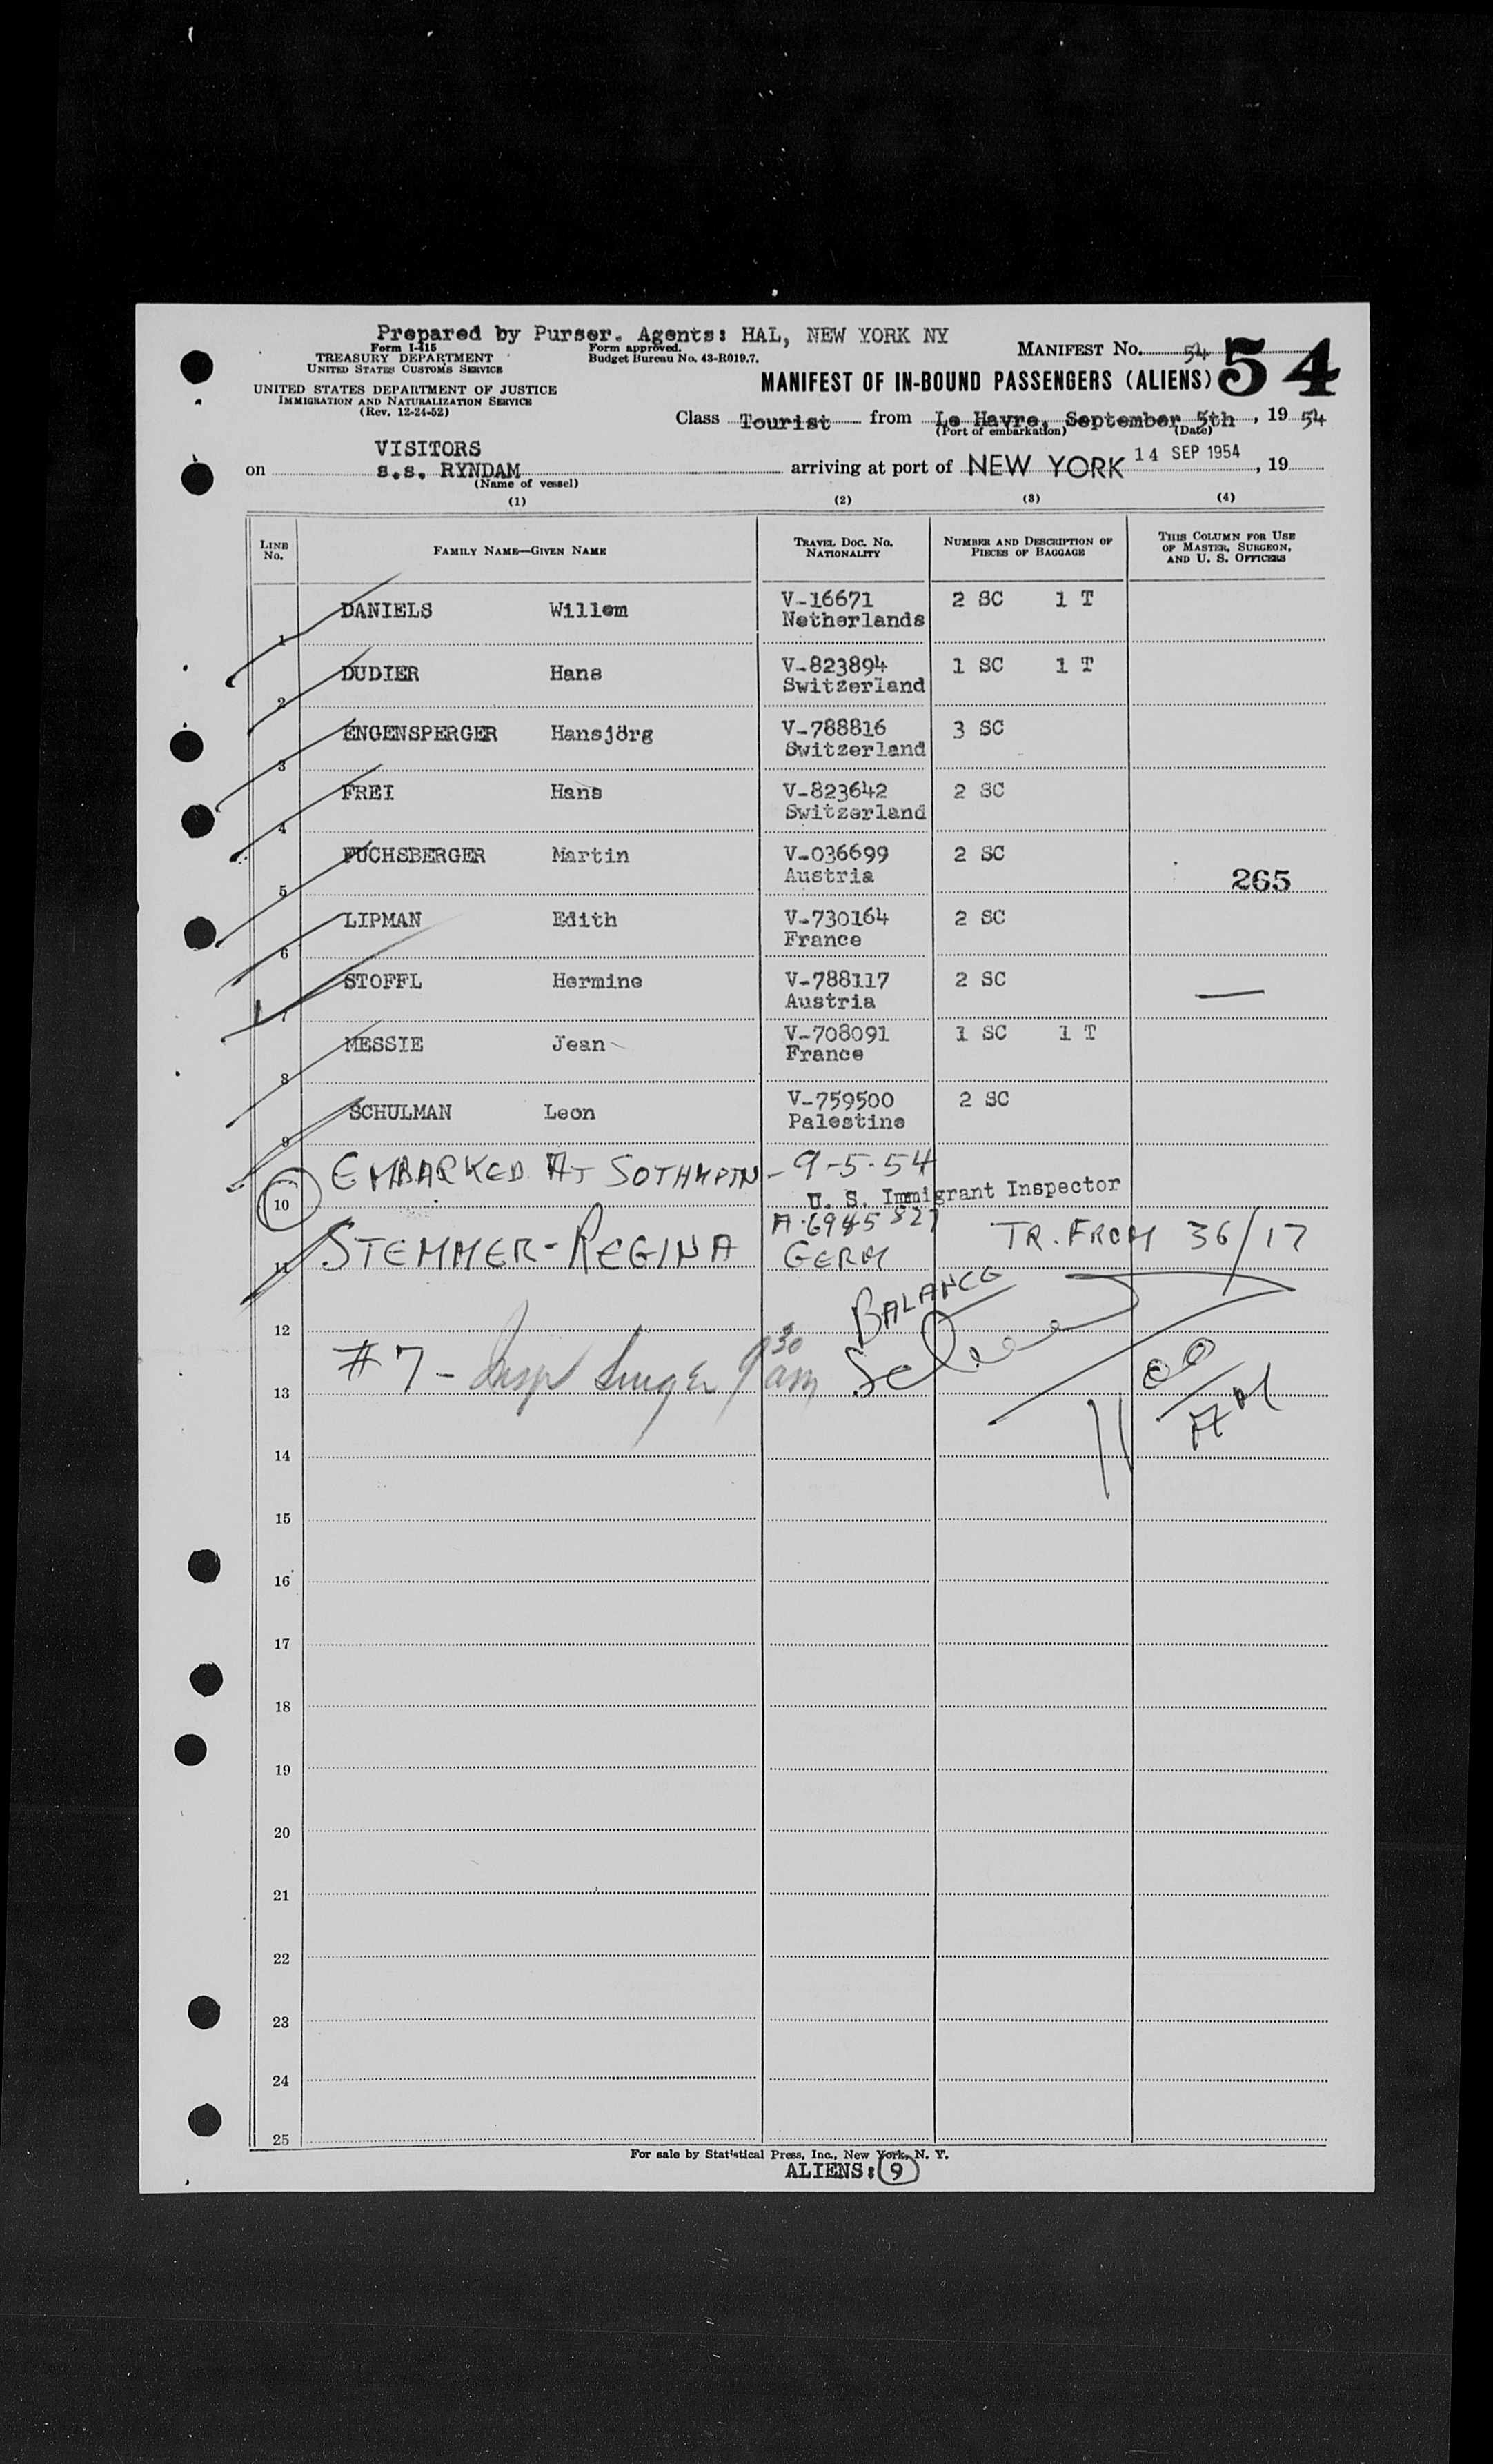 Prepared by Purser. Agents: HAL, NEW YORK NY
Form I-415
TREASURY DEPARTMENT
UNITED STATES CUSTOMS SERVICE
Form approved.
Budget Bureau No. 43-R019.7.
MANIFEST NO. 54 54
UNITED STATES DEPARTMENT OF JUSTICE
IMMIGRATION AND NATURALIZATION SERVICE
(Rev. 12-24-52)
MANIFEST OF IN-BOUND PASSENGERS (ALIENS)
Class Tourist from Le Havre, September 5th, 19 54
(Port of embarkation) (Date)
VISITORS
on s.s. RYNDAM arriving at port of NEW YORK 14 SEP 1954, 19
(Name of vessel)
(1) (2) (3) (4)
LINE NO. FAMILY NAME—GIVEN NAME TRAVEL DOC. NO. NATIONALITY NUMBER AND DESCRIPTION OF PIECES OF BAGGAGE THIS COLUMN FOR USE OF MASTER, SURGEON, AND U. S. OFFICERS
1 DANIELS Willem V-16671 Netherlands 2 SC 1 T
2 DUDIER Hans V-823894 Switzerland 1 SC 1 T
3 ENGENSPERGER Hansjörg V-788816 Switzerland 3 SC
4 FREI Hans V-823642 Switzerland 2 SC
5 FUCHSBERGER Martin V-036699 Austria 2 SC 265
6 LIPMAN Edith V-730164 France 2 SC
7 STOFFL Hermine V-788117 Austria 2 SC —
8 MESSIE Jean V-708091 France 1 SC 1 T
9 SCHULMAN Leon V-759500 Palestine 2 SC
10 EMBARKED AT SOTHMPTN - 9-5-54
U. S. Immigrant Inspector
11 STEMMER - REGINA A-6945827 GERM TR. FROM 36/17
12 BALANCE
13 #7 - Insp Singer 9 30 am 11 00 AM
14
15
16
17
18
19
20
21
22
23
24
25
For sale by Statistical Press, Inc., New York, N. Y.
ALIENS: 9